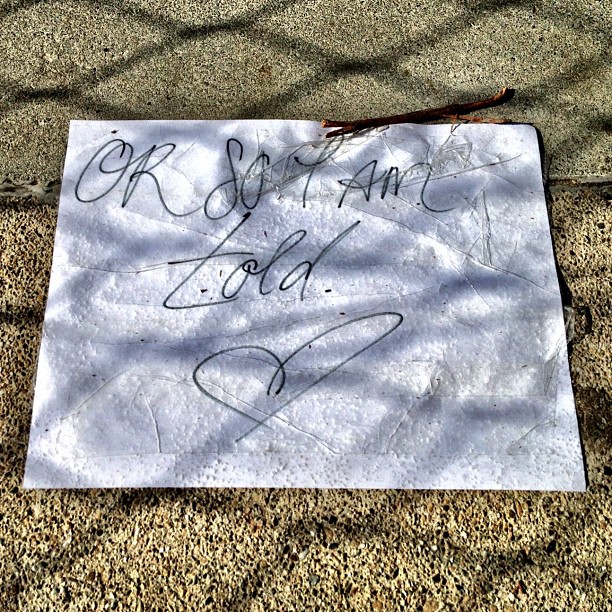 OR SO I AM
told.